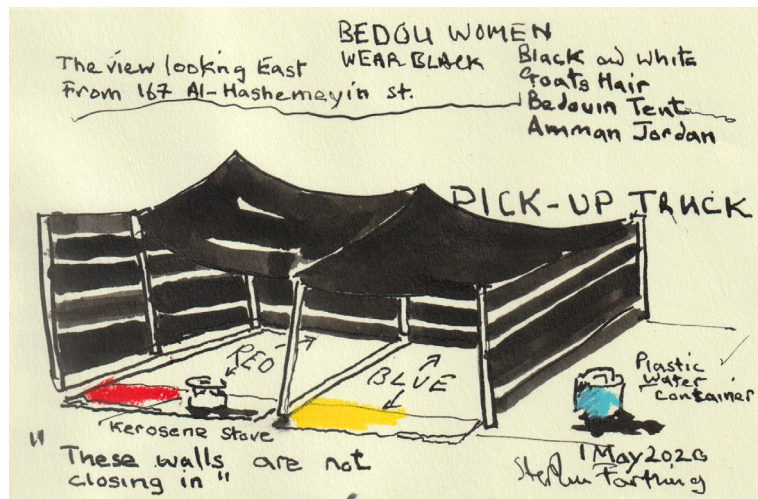 BEDOU WOMEN
WEAR BLACK
The view looking East
From 167 Al-Hashemeyin st.
Black and White
Goats Hair
Bedouin Tent
Amman Jordan
PICK-UP TRUCK
RED
BLUE
Plastic
Water
Container
Kerosene Stove
"These walls are not
closing in"
1 May 2020
Stephen Farthing